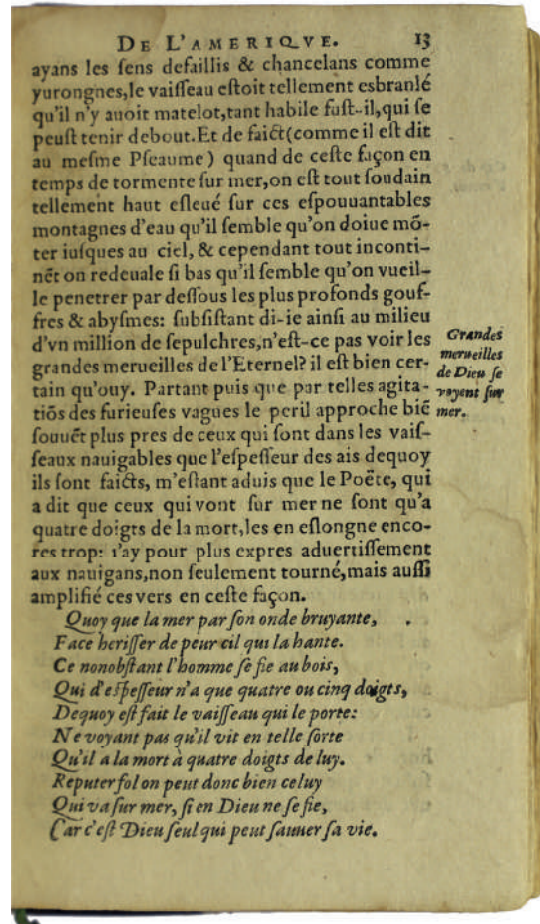 DE L'AMERIQVE. 13
ayans les ſens defaillis & chancelans comme
yurongnes,le vaiſſeau eſtoit tellement esbranlé
qu'il n'y auoit matelot,tant habile fuſt-il,qui ſe
peuſt tenir debout.Et de faict(comme il eſt dit
au meſme Pſeaume) quand de ceſte façon en
temps de tormente ſur mer,on eſt tout ſoudain
tellement haut eſleué ſur ces eſpouuantables
montagnes d'eau qu'il ſemble qu'on doiue mō-
ter iuſques au ciel, & cependant tout inconti-
nēt on redeuale ſi bas qu'il ſemble qu'on vueil-
le penetrer par deſſous les plus profonds gouf-
fres & abyſmes: ſubſiſtant di-ie ainſi au milieu
d'vn million de ſepulchres,n'eſt-ce pas voir les
grandes merueilles de l'Eternel? il eſt bien cer-
tain qu'ouy. Partant puis que par telles agita-
tiōs des furieuſes vagues le peril approche biē
ſouuēt plus pres de ceux qui ſont dans les vaiſ-
ſeaux nauigables que l'eſpeſſeur des ais dequoy
ils ſont faicts, m'eſtant aduis que le Poëte, qui
a dit que ceux qui vont ſur mer ne ſont qu'a
quatre doigts de la mort,les en eſlongne enco-
res trop: i'ay pour plus expres aduertiſſement
aux nauigans,non ſeulement tourné,mais auſſi
amplifié ces vers en ceſte façon.
Grandes
merueilles
de Dieu ſe
voyent ſur
mer.
Quoy que la mer par ſon onde bruyante,
Face heriſſer de peur cil qui la hante.
Ce nonobſtant l'homme ſe fie au bois,
Qui d'eſpeſſeur n'a que quatre ou cinq doigts,
Dequoy eſt fait le vaiſſeau qui le porte:
Ne voyant pas qu'il vit en telle ſorte
Qu'il a la mort à quatre doigts de luy.
Reputer fol on peut donc bien celuy
Qui va ſur mer, ſi en Dieu ne ſe fie,
Car c'eſt Dieu ſeul qui peut ſauuer ſa vie.